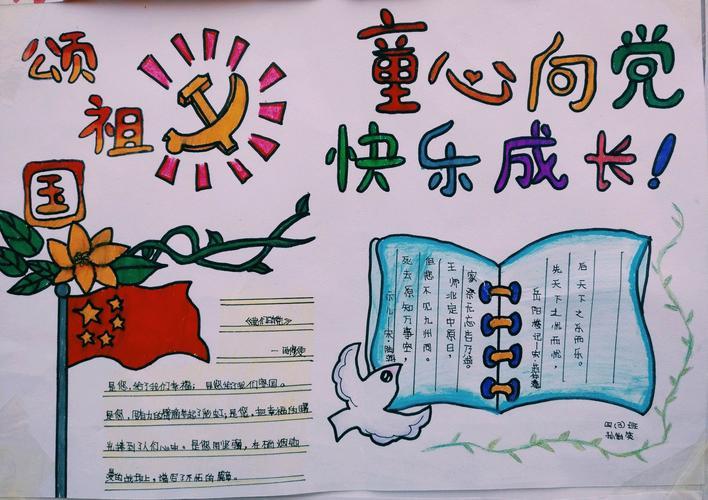 颂
祖
国
童心向党
快乐成长!
是您,给了我们幸福;是您给了我们
是您,有力的臂膀举起了;是您,把幸福的曙
光捧到了人们心中。是您用坚强,在硝烟弥
漫的战场上,谱写了不朽的篇章。
示儿—宋·陆游
死去原知万事空,
但悲不见九州同。
王师北定中原日,
家祭无忘告乃翁。
岳阳楼记—宋·范仲淹
先天下之忧而忧,
后天下之乐而乐。
四(3)班